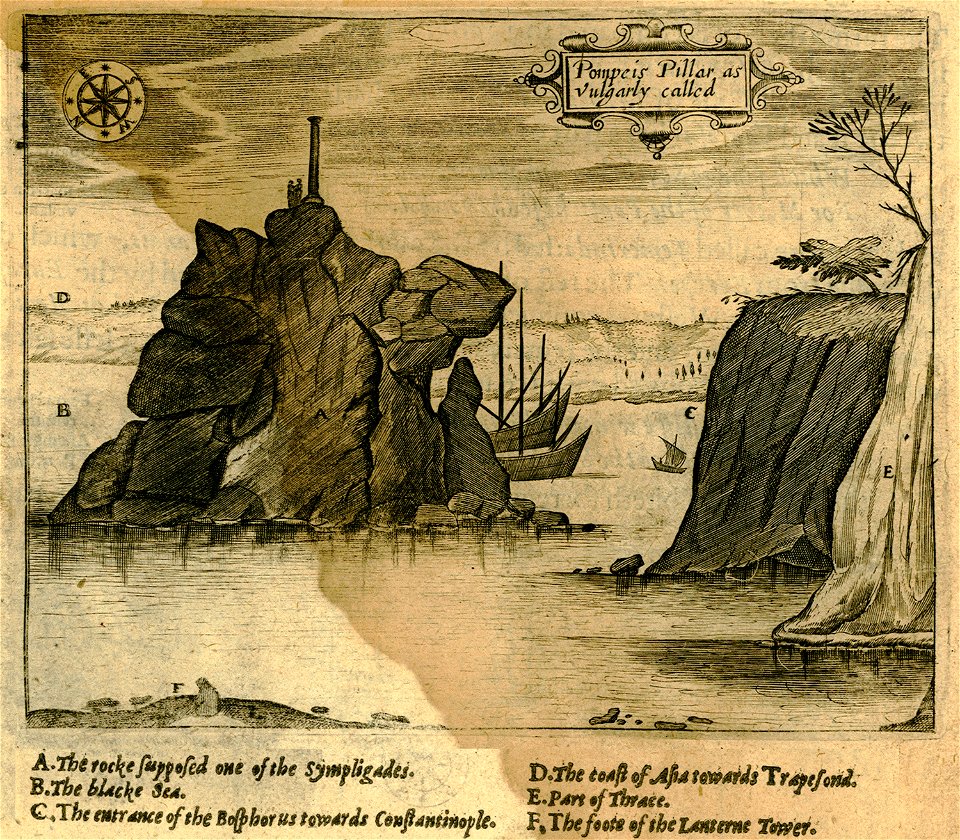 Pompeis Pillar as
vulgarly called
E
S
W
D
B
A
C
E
F
A. The rocke supposed one of the Sympligades.
B. The blacke Sea.
C. The entrance of the Bosphorus towards Constantinople.
D. The coast of Asia towards Trapesond.
E. Part of Thrace.
F. The foote of the Lanterne Tower.